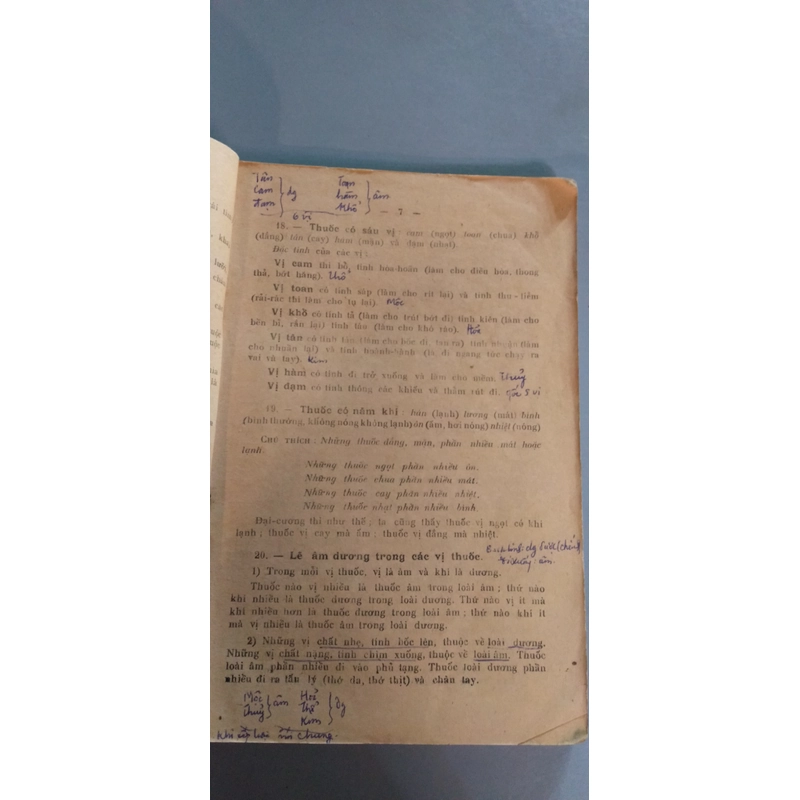 Tân
Cam
Đạm
dg
Toan
hàm
khổ
âm
6 vị
18. — Thuốc có sáu vị : cam (ngọt) toan (chua) khổ
(đắng) tân (cay) hàm (mặn) và đạm (nhạt).
Đặc tính của các vị :
Vị cam thì bổ, tính hòa-hoãn (làm cho điều hòa, thong
thả, bớt hăng). thổ
Vị toan có tính sáp (làm cho rít lại) và tính thu-liễm
(rải-rác thì làm cho tụ lại). Mộc
Vị khổ có tính tả (làm cho trút bớt đi) tính kiên (làm cho
bền bỉ, rắn lại) tính táo (làm cho khô ráo). Hỏa
Vị tân có tính tán (làm cho bốc đi, tan ra) tính nhuận (làm
cho nhuần lại) và tính hoành-hành (là đi ngang tức chạy ra
vai và tay). Kim
Vị hàm có tính đi trở xuống và làm cho mềm. thuỷ
Vị đạm có tính thông các khiếu và thấm rút đi. gốc 5 vị
19. — Thuốc có năm khí : hàn (lạnh) lương (mát) bình
(bình thường, không nóng không lạnh) ôn (ấm, hơi nóng) nhiệt (nóng)
CHÚ THÍCH : Những thuốc đắng, mặn, phần nhiều mát hoặc
lạnh.
Những thuốc ngọt phần nhiều ôn.
Những thuốc chua phần nhiều mát.
Những thuốc cay phần nhiều nhiệt.
Những thuốc nhạt phần nhiều bình.
Đại-cương thì như thế ; ta cũng thấy thuốc vị ngọt có khí
lạnh ; thuốc vị cay mà ấm ; thuốc vị đắng mà nhiệt.
20. — Lẽ âm dương trong các vị thuốc.
1) Trong mỗi vị thuốc, vị là âm và khí là dương.
Thuốc nào vị nhiều là thuốc âm trong loài âm ; thứ nào
khí nhiều là thuốc dương trong loài dương. Thứ nào vị ít mà
khí nhiều hơn là thuốc dương trong loài âm ; thứ nào khí ít
mà vị nhiều là thuốc âm trong loài dương.
2) Những vị chất nhẹ, tính bốc lên, thuộc về loài dương.
Những vị chất nặng, tính chìm xuống, thuộc về loài âm. Thuốc
loài âm phần nhiều đi vào phủ tạng. Thuốc loài dương phần
nhiều đi ra tấu lý (thớ da, thớ thịt) và chân tay.
Mộc
thuỷ
âm
Hoả
thổ
Kim
dg
Khi xếp loại nói chung.